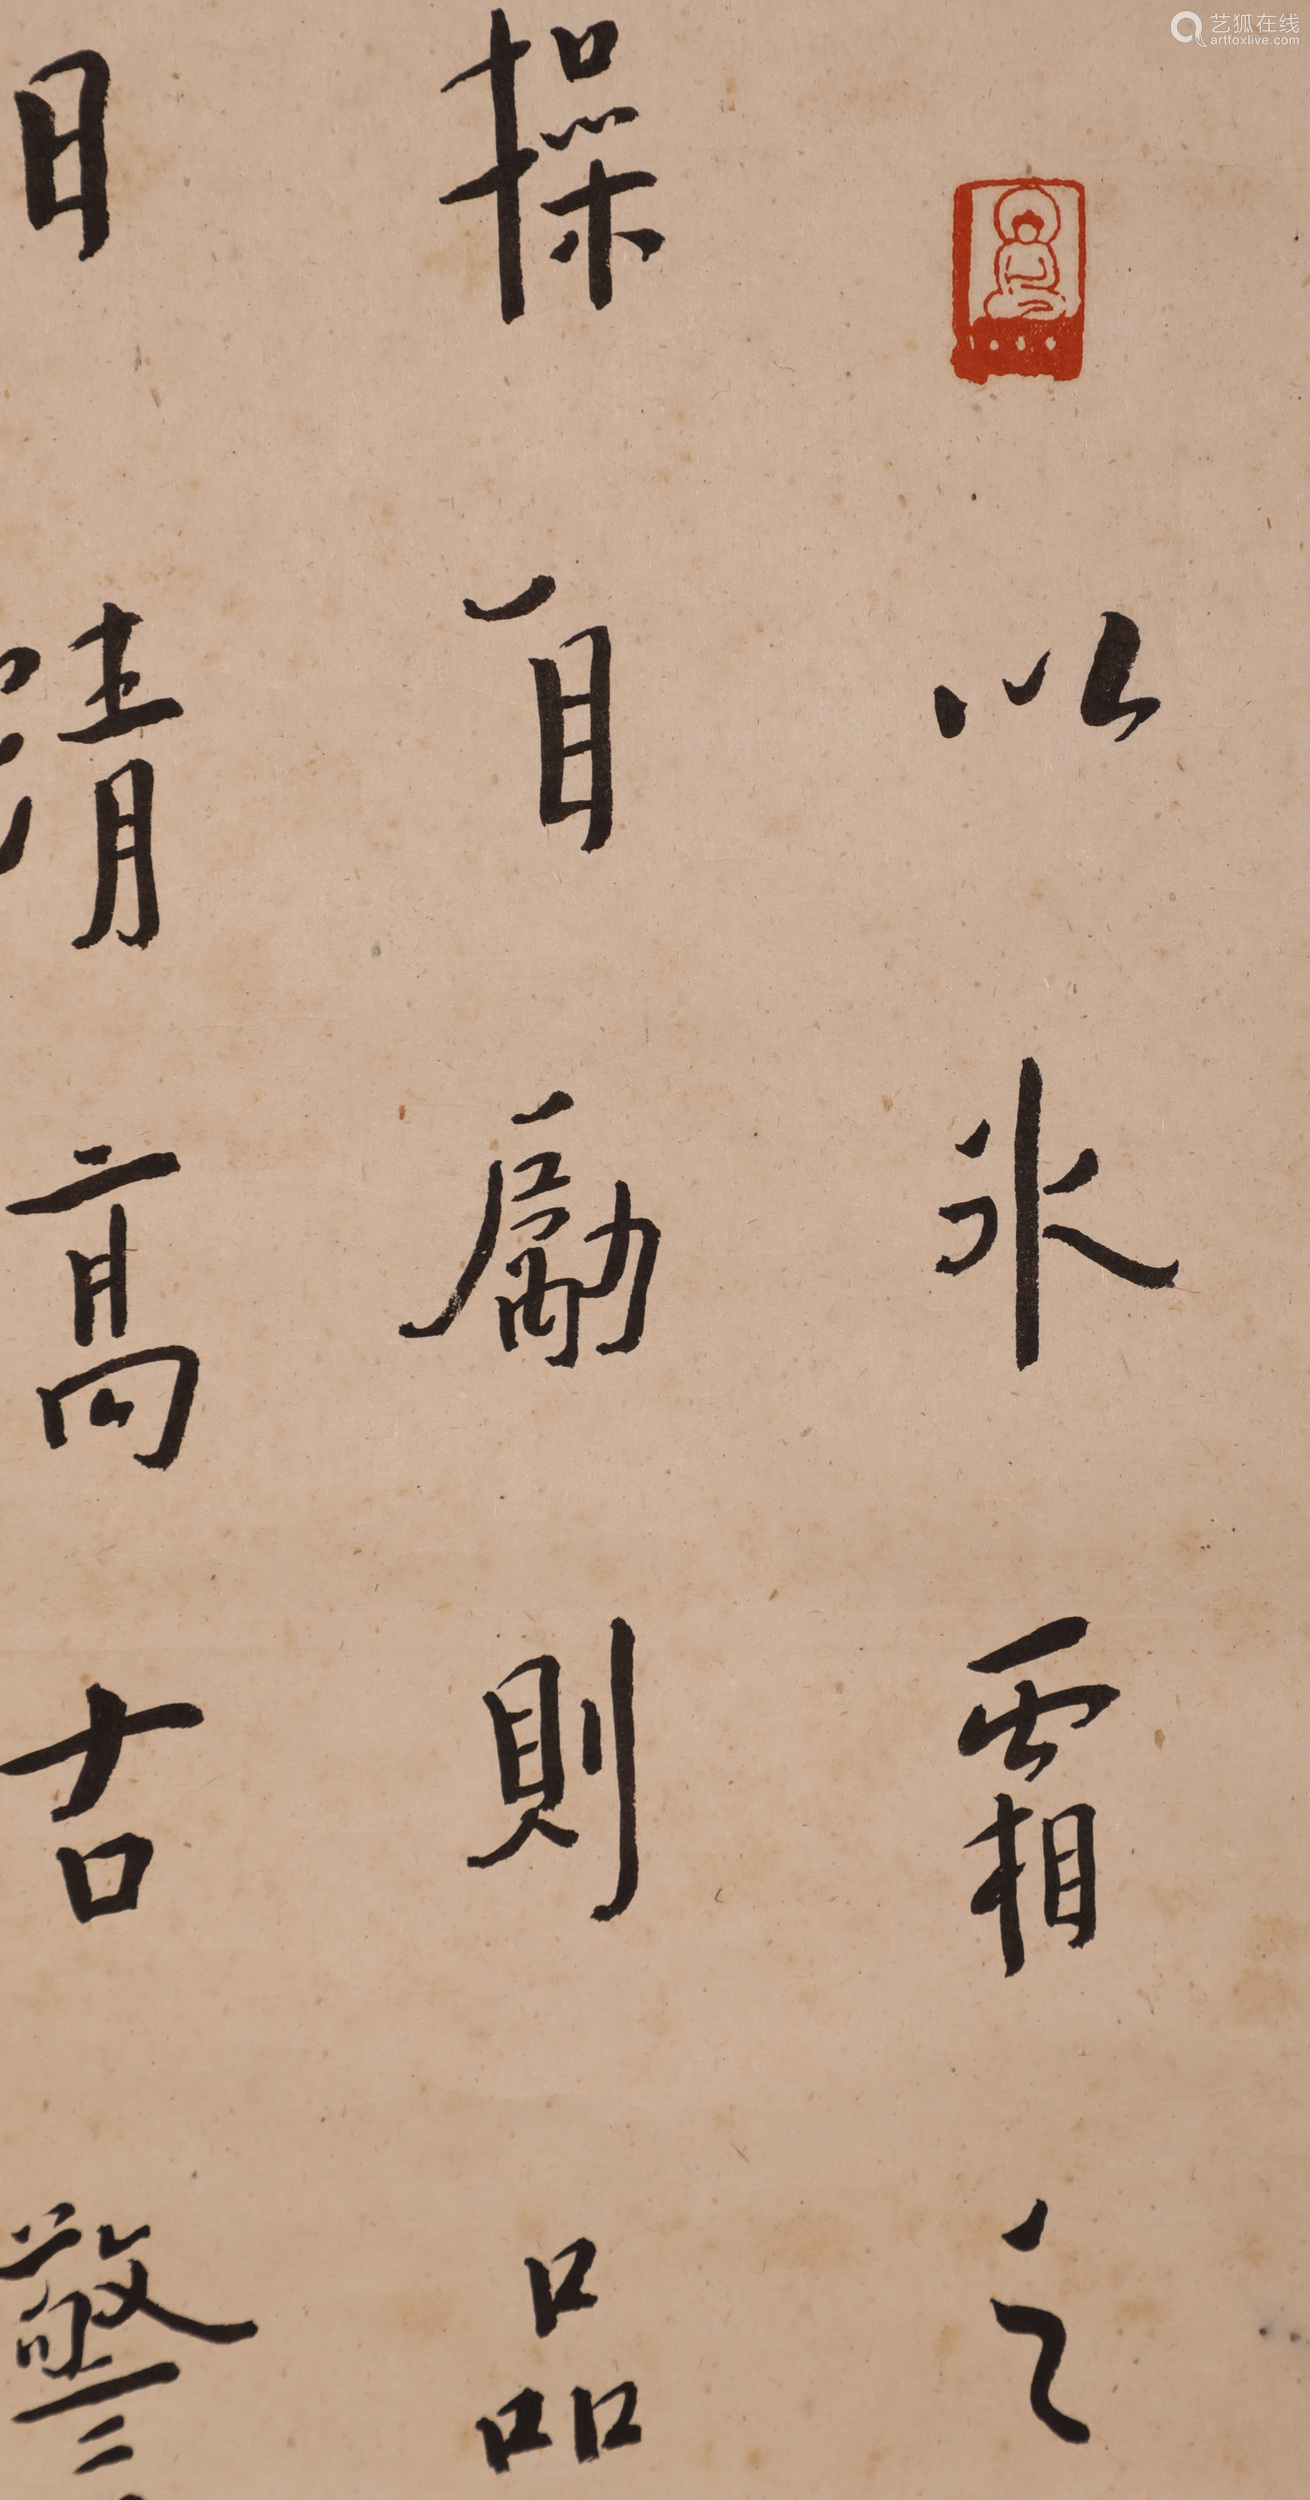 艺狐在线
artfoxlive.com
以冰霜之
操自勵則品
日清高古警